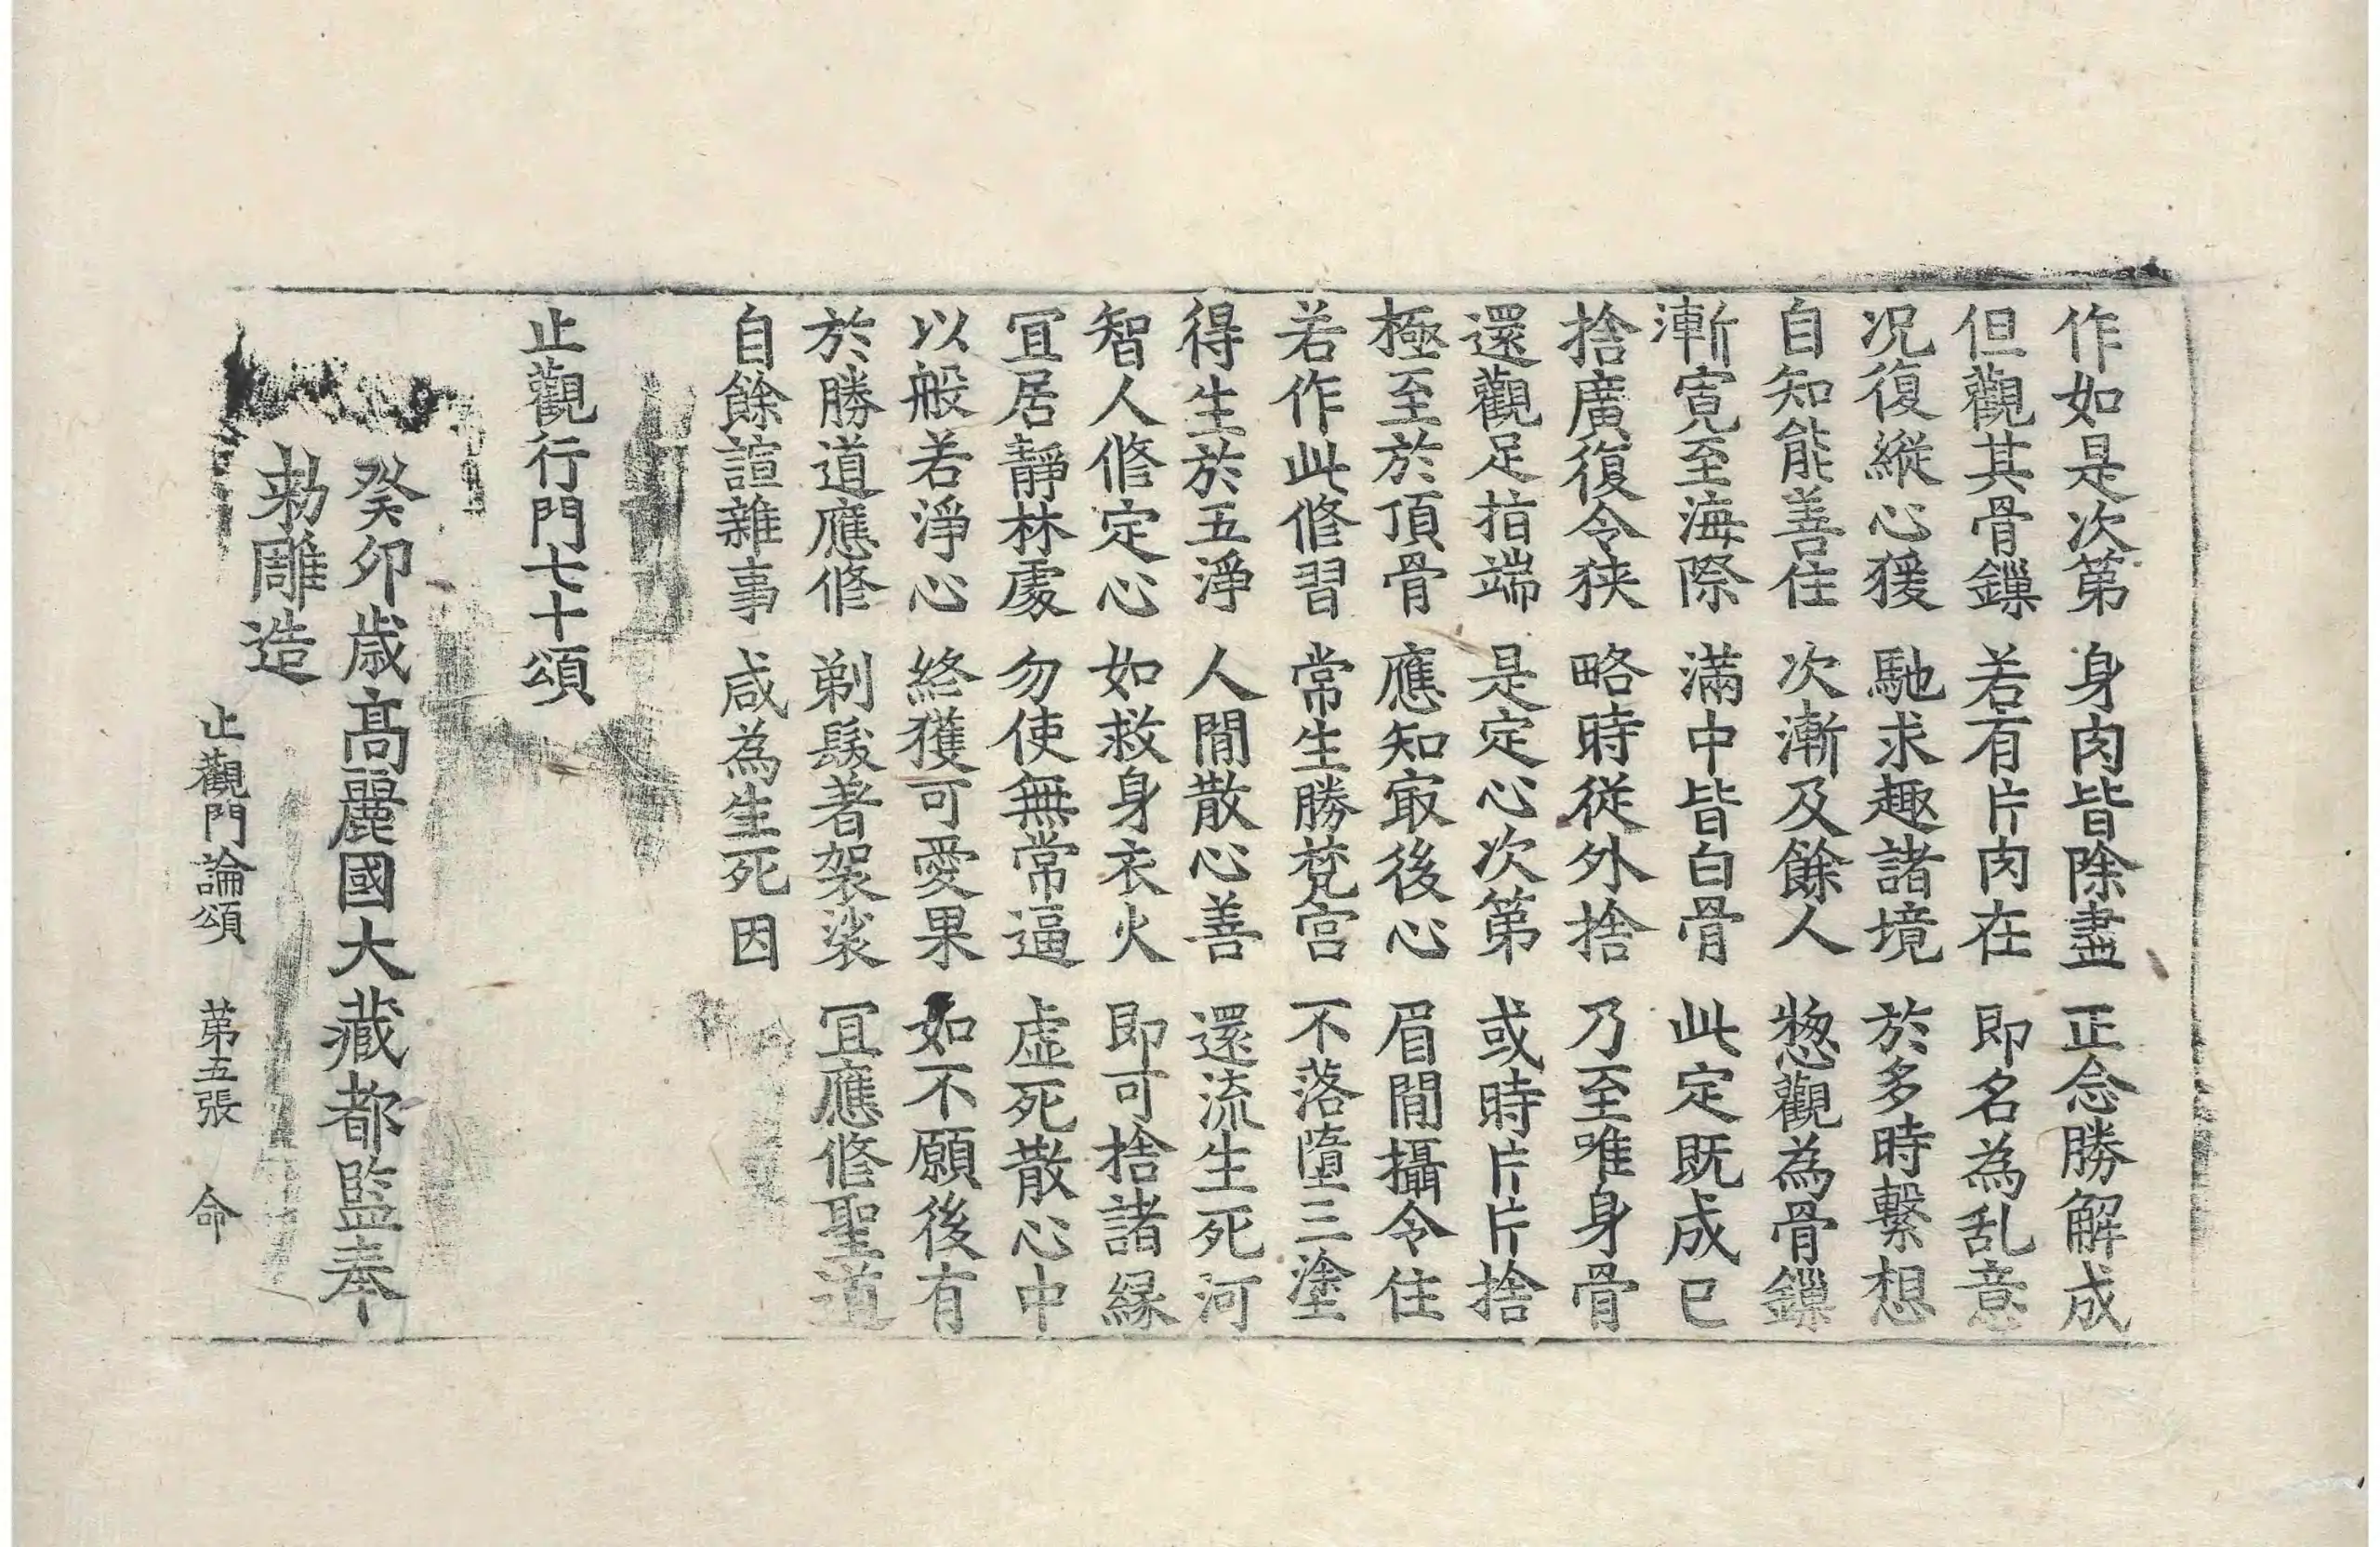 作如是次第 身肉皆除盡 正念勝解成
但觀其骨鏁 若有片肉在 即名為乱意
况復縱心猨 馳求趣諸境 於多時繫想
自知能善住 次漸及餘人 惣觀為骨鏁
漸寬至海際 滿中皆白骨 此定既成已
捨廣復令狹 略時從外捨 乃至唯身骨
還觀足指端 是定心次第 或時片片捨
極至於頂骨 應知㝡後心 眉閒攝令住
若作此修習 常生勝梵宮 不落墮三塗
得生於五淨 人閒散心善 還流生死河
智人修定心 如救身衣火 即可捨諸緣
冝居靜林處 勿使無常逼 虛死散心中
以般若淨心 終獲可愛果 如不願後有
於勝道應修 剃髮著袈裟 冝應修聖道
自餘諠雜事 咸為生死因
止觀行門七十頌
癸卯歲髙麗國大藏都監奉
勑雕造
止觀門論頌 苐五張 命